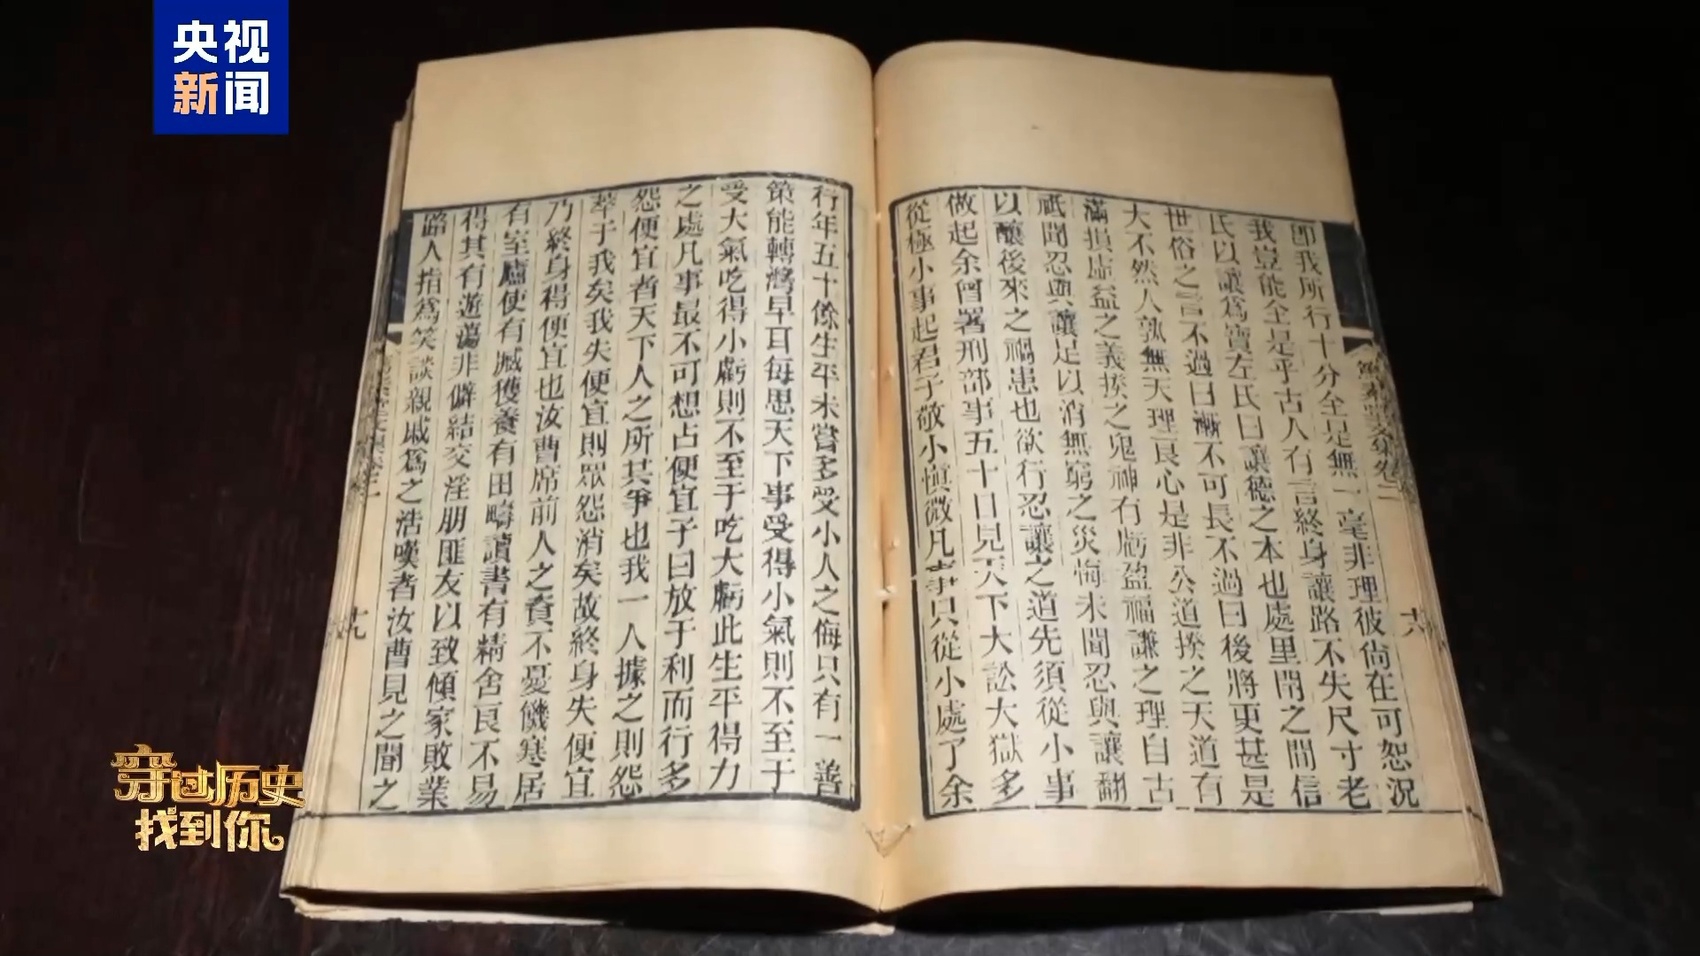 央视
新闻
即我所行十分全是無一毫非理彼尚在可恕況
我豈能全是乎古人有言終身讓路不失尺寸老
氏以讓爲寶左氏曰讓德之本也處里閈之間信
世俗之言不過曰漸不可長不過曰後將更甚是
大不然人孰無天理良心是非公道揆之天道有
滿損虛益之義揆之鬼神有虧盈福謙之理自古
祇聞忍與讓足以消無窮之災悔未聞忍與讓翻
以釀後來之禍患也欲行忍讓之道先須從小事
做起余曾署刑部事五十日見天下大訟大獄多
從極小事起君子敬小愼微凡事只從小處了余
行年五十餘生平未嘗多受小人之侮只有一善
策能轉灣早耳每思天下事受得小氣則不至于
受大氣吃得小虧則不至于吃大虧此生平得力
之處凡事最不可想占便宜子曰放于利而行多
怨便宜者天下人之所共爭也我一人據之則怨
萃于我矣我失便宜則眾怨消矣故終身失便宜
乃終身得便宜也汝曹席前人之資不憂饑寒居
有室廬使有臧獲養有田疇讀書有精舍良不易
得其有遊蕩非僻結交淫朋匪友以致傾家敗業
路人指爲笑談親戚爲之浩嘆者汝曹見之聞之
十九
穿过历史
找到你